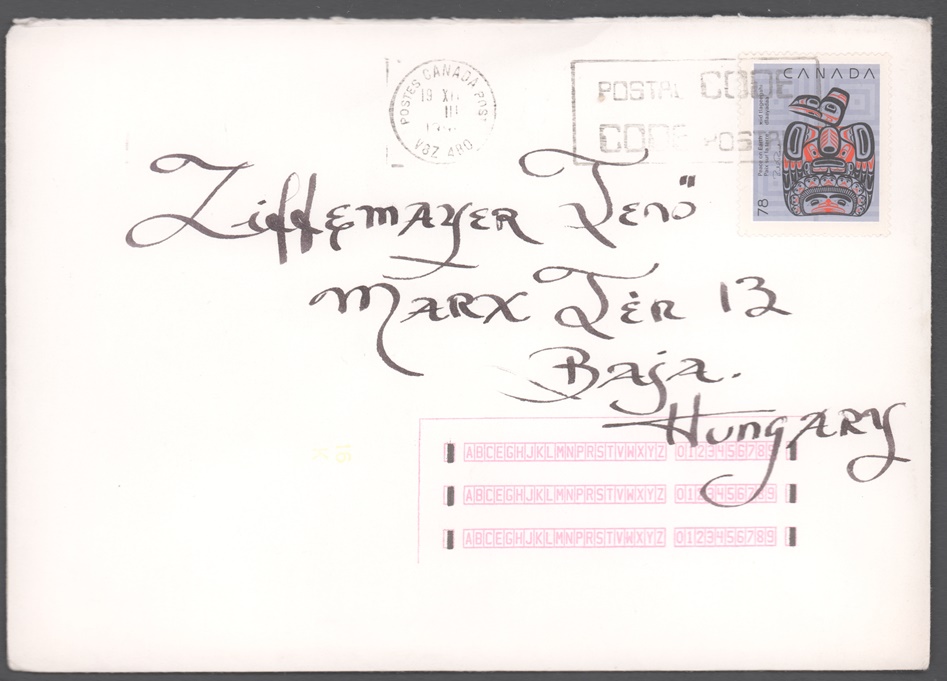 POSTES CANADA POST
19 XII
III
V8Z 4B0
POSTAL CODE
CODE POSTAL
CANADA
78
Ziffemayer Jenő
Marx Tér 13
Baja.
Hungary
ABCEGHJKLMNPRSTVWXYZ 0123456789
ABCEGHJKLMNPRSTVWXYZ 0123456789
ABCEGHJKLMNPRSTVWXYZ 0123456789